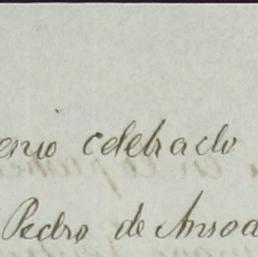 enio celebrado
Pedro de Ansoa